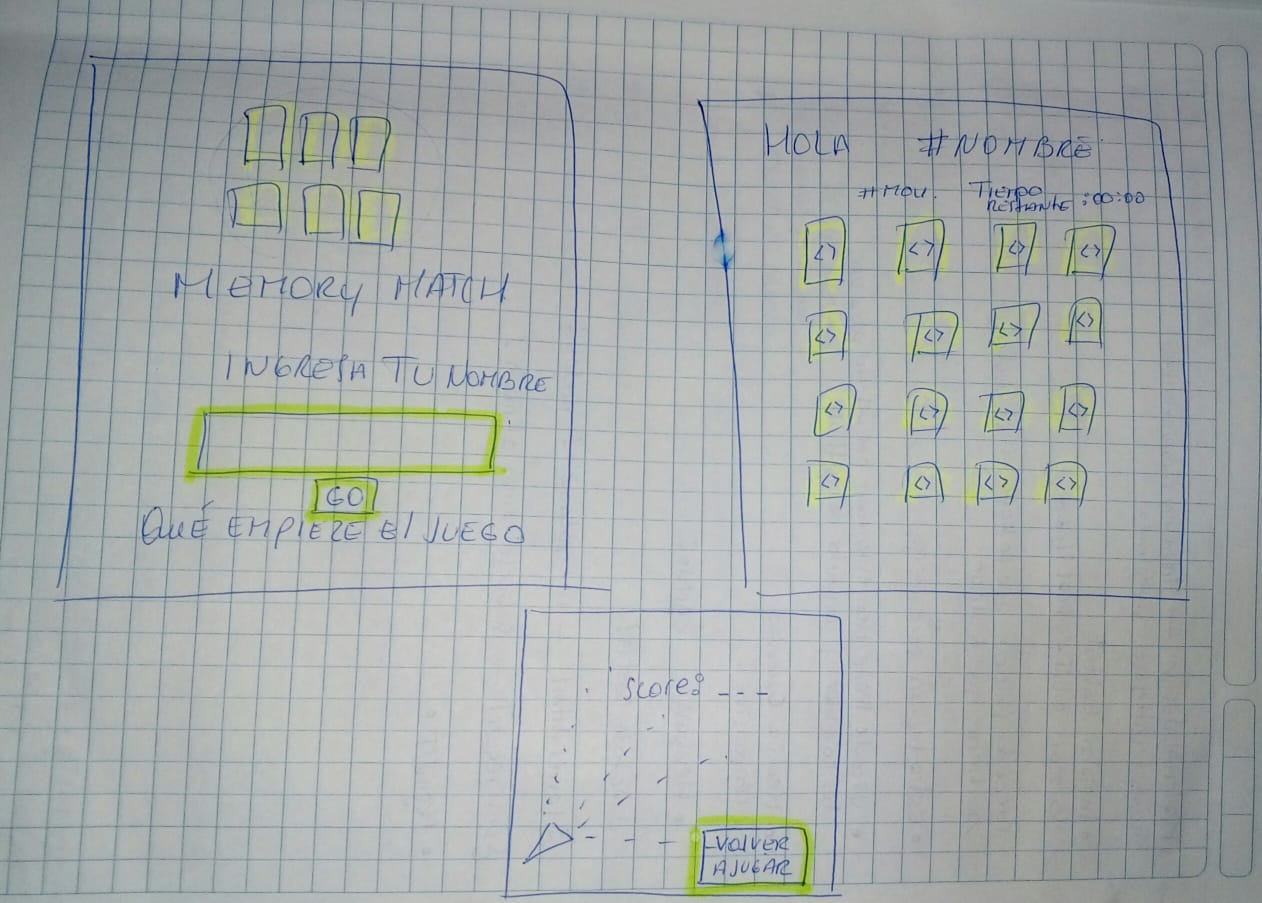 MEMORY MATCH
INGRESA TU NOMBRE
GO
QUÉ EMPIEZE El JUEGO
HOLA #NOMBRE
#MOV. TIEMPO RESTANTE :00:00
<> <> <> <>
<> <> <> <>
<> <> <> <>
<> <> <> <>
Score: ---
VOLVER
A JUGAR